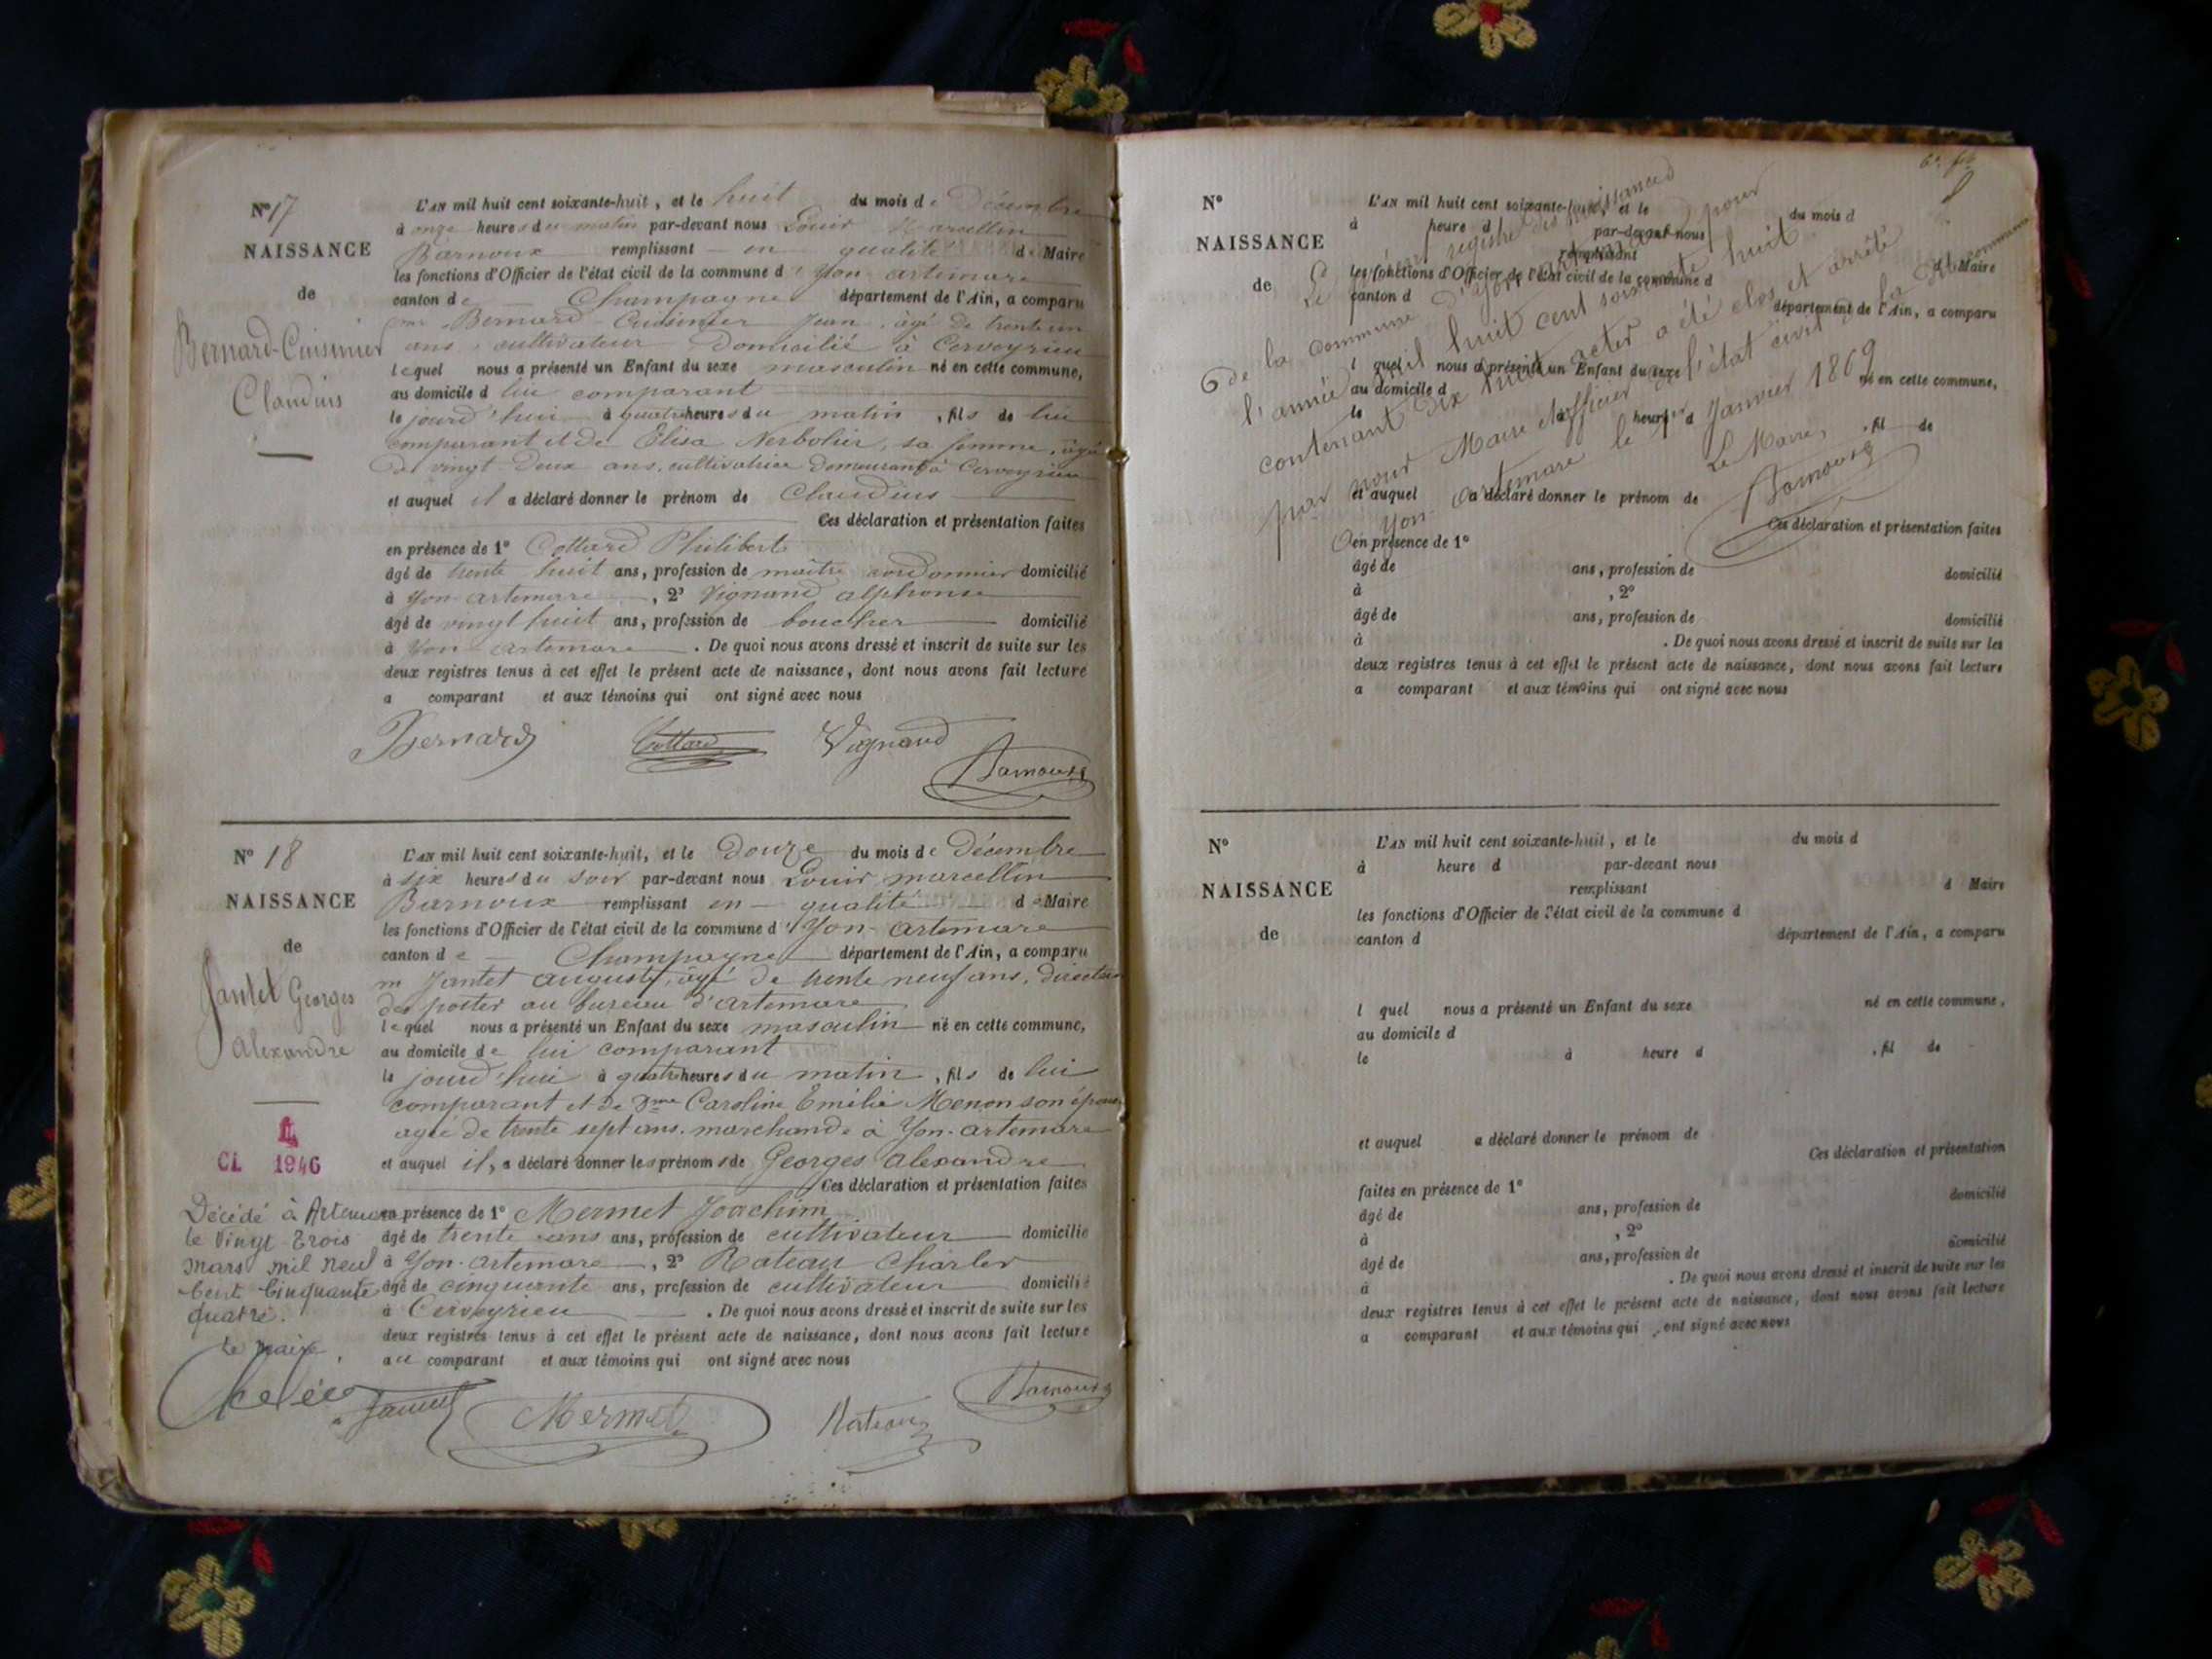 N° 17
NAISSANCE
de
Bernard-Cuisinier
Claudius
L'AN mil huit cent soixante-huit, et le huit du mois de Décembre
à onze heures du matin par-devant nous Louis Marcellin
Barnoux remplissant en qualité de Maire
les fonctions d'Officier de l'état civil de la commune d'Yon-artemare
canton de Champagne département de l'Ain, a comparu
Bernard-Cuisinier Jean, âgé de trente un
ans, cultivateur Domicilié à Cerveyrieu
lequel nous a présenté un Enfant du sexe masculin né en cette commune,
au domicile d lui comparant
le jourd'hui à quatre heures du matin, fils de lui
comparant et de Elisa Nerbolier, sa femme, âgée
de vingt-deux ans, cultivatrice demeurant à Cerveyrieu
et auquel il a déclaré donner le prénom de Claudius
Ces déclaration et présentation faites
en présence de 1° Cottard Philibert
âgé de trente huit ans, profession de maître cordonnier domicilié
à Yon-artemare, 2° Vignand alphonse
âgé de vingt huit ans, profession de boucher domicilié
à Yon-artemare. De quoi nous avons dressé et inscrit de suite sur les
deux registres tenus à cet effet le présent acte de naissance, dont nous avons fait lecture
a comparant et aux témoins qui ont signé avec nous
Bernard Cottard Vignand
Barnoux
N° 18
NAISSANCE
de
Jantet Georges
Alexandre
L'AN mil huit cent soixante-huit, et le Douze du mois de Décembre
à six heures du soir par-devant nous Louis marcellin
Barnoux remplissant en qualité de Maire
les fonctions d'Officier de l'état civil de la commune d'Yon-artemare
canton de Champagne département de l'Ain, a comparu
m Jantet auguste, âgé de trente neuf ans, directeur
des postes au bureau d'artemare
lequel nous a présenté un Enfant du sexe masculin né en cette commune,
au domicile de lui comparant
le jourd'hui à quatre heures du matin, fils de lui
comparant et de Dme Caroline Emélie Menon son épouse
agée de trente sept ans. marchande à Yon-artemare
et auquel il, a déclaré donner les prénoms de Georges Alexandre
Ces déclaration et présentation faites
en présence de 1° Mermet Joachim
âgé de trente ans ans, profession de cultivateur domicilié
à Yon-artemare, 2° Rateau Charles
âgé de cinquante ans, profession de cultivateur domicilié
à Cerveyrieu. De quoi nous avons dressé et inscrit de suite sur les
deux registres tenus à cet effet le présent acte de naissance, dont nous avons fait lecture
au comparant et aux témoins qui ont signé avec nous
CL 1946
Décédé à Artemare
le Vingt Trois
Mars mil neuf
cent cinquante
quatre.
Le maire,
Jantet Mermet Rateau Barnoux
N°
NAISSANCE
de
L'AN mil huit cent soixante-huit, et le du mois d
à heure d par-devant nous
remplissant d Maire
les fonctions d'Officier de l'état civil de la commune d
canton d département de l'Ain, a comparu
l quel nous a présenté un Enfant du sexe né en cette commune,
au domicile d
le à heure d , fil de
et auquel a déclaré donner le prénom de
Ces déclaration et présentation faites
en présence de 1°
âgé de ans, profession de domicilié
à , 2°
âgé de ans, profession de domicilié
à . De quoi nous avons dressé et inscrit de suite sur les
deux registres tenus à cet effet le présent acte de naissance, dont nous avons fait lecture
a comparant et aux témoins qui ont signé avec nous
Le registre des naissances
de la commune d'Yon-artemare pour
l'année mil huit cent soixante huit
contenant dix huit actes a été clos et arrêté
par nous Maire et officier de l'état civil de la commune
Yon-artemare le 1er Janvier 1869
Le Maire,
Barnoux
N°
NAISSANCE
de
L'AN mil huit cent soixante-huit, et le du mois d
à heure d par-devant nous
remplissant d Maire
les fonctions d'Officier de l'état civil de la commune d
canton d département de l'Ain, a comparu
l quel nous a présenté un Enfant du sexe né en cette commune,
au domicile d
le à heure d , fil de
et auquel a déclaré donner le prénom de
Ces déclaration et présentation
faites en présence de 1°
âgé de ans, profession de domicilié
à , 2°
âgé de ans, profession de domicilié
à . De quoi nous avons dressé et inscrit de suite sur les
deux registres tenus à cet effet le présent acte de naissance, dont nous avons fait lecture
a comparant et aux témoins qui ont signé avec nous